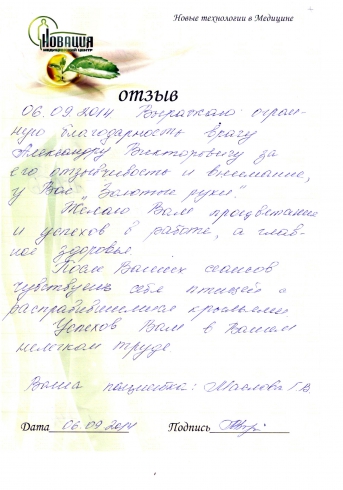 Новые технологии в Медицине
НОВАЦИЯ
МЕДИЦИНСКИЙ ЦЕНТР
ОТЗЫВ
06.09.2014 Выражаю огром-
ную благодарность врачу
Александру Викторовичу за
его отзывчивость и внимание,
у Вас „Золотые руки".
Желаю Вам процветания
и успехов в работе, а глав-
ное здоровья.
После Ваших сеансов
чувствуешь себя птицей с
расправившимися крыльями
Успехов Вам в Вашем
нелегком труде.
Ваша пациентка: Маслова Г.В.
Дата 06.09.2014 Подпись